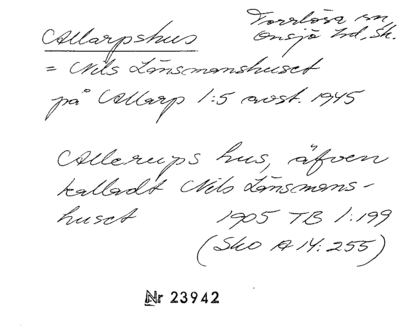 Allarpshus
Torrlösa sn
Onsjö hd, Sk.
= Nils Länsmanshuset
på Allarp 1:5 avst. 1945
Allerups hus, äfven
kalladt Nils Länsmans-
huset 1905 TB 1:199
(Sko A 14:255)
Nr 23942